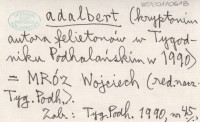 adalbert (kryptonim
autora felietonów w Tygod-
niku Podhalańskim w 1990)
= MRÓZ Wojciech (red. nacz.
Tyg. Podh.).
Zob.: Tyg. Podh. 1990, nr 45/